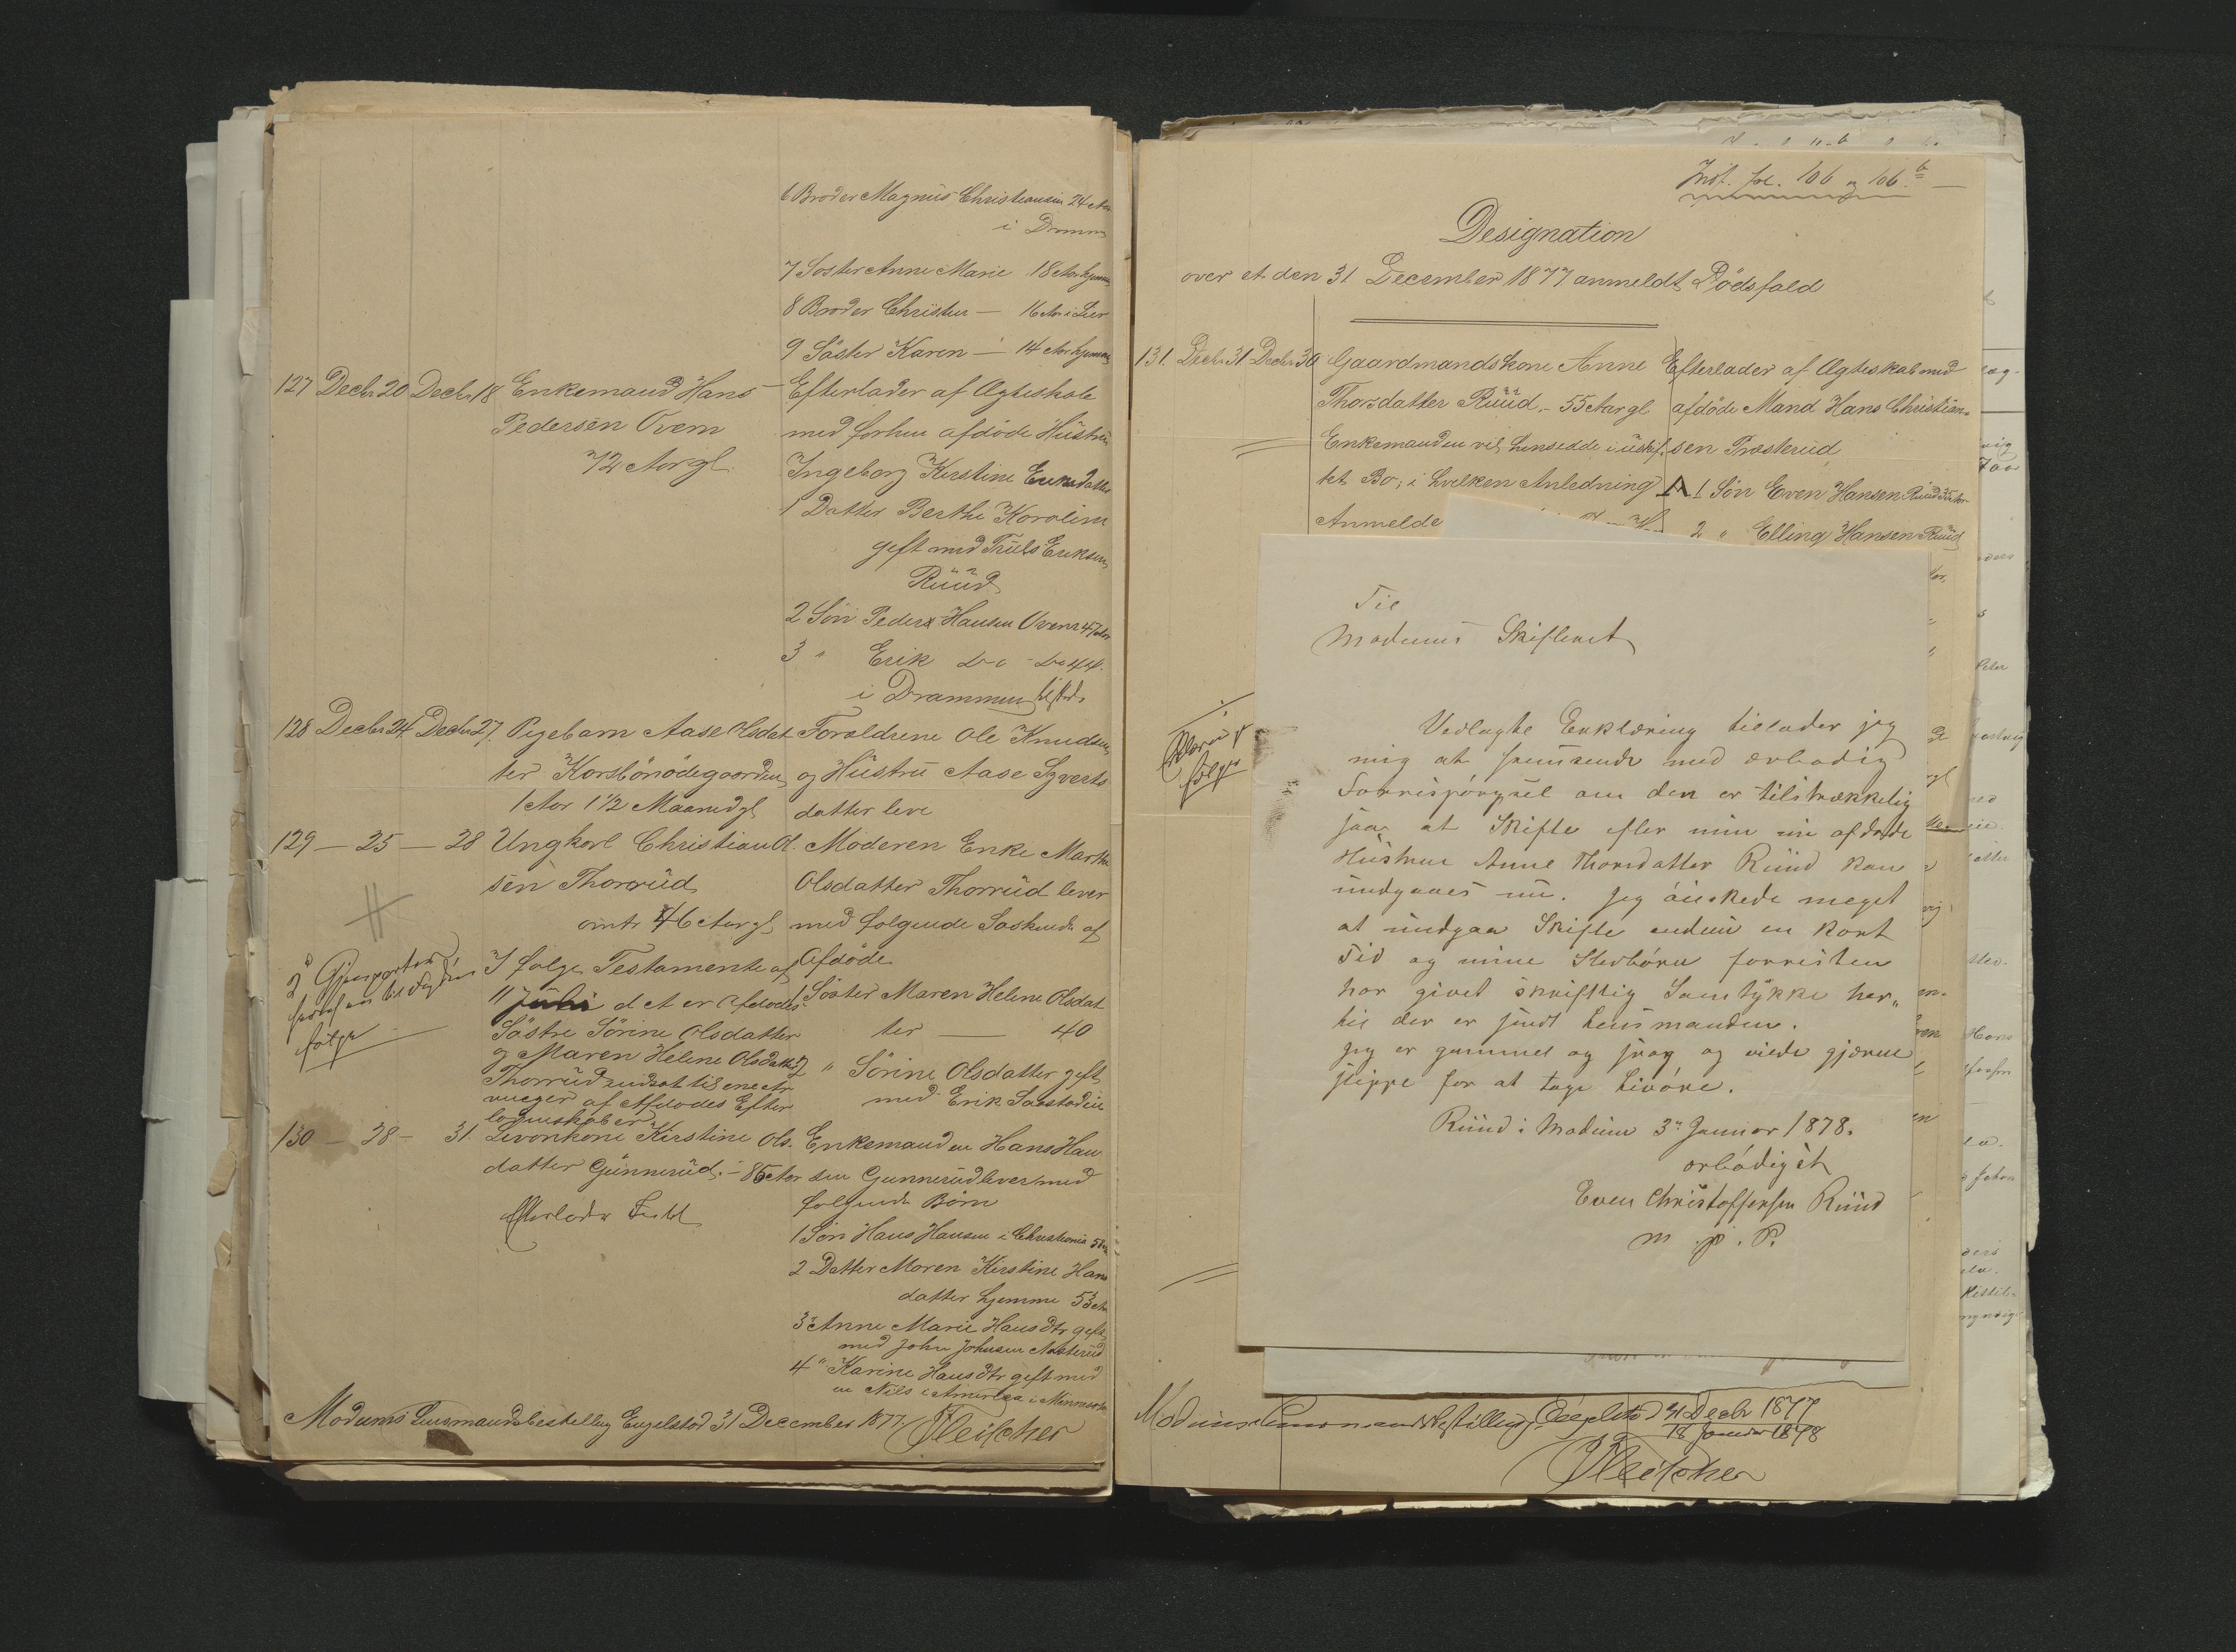 6 Broder Magnus Christiansen 24 Aar
i Dramm
7 Søster Anne Marie 18 Aar hjemme
8 Broder Christen — 16 Aar i Lier
9 Søster Karen — 14 Aar hjemme
127 Decbr 20 Decbr 18 Enkemand Hans
Pedersen Ovem
72 Aar gl.
Efterlader af Ægteskab
med forhen afdøde Hüstrü
Ingeborg Kirstine Eriksdatter
1 Datter Berthe Karoline
gift med Trüls Eriksen
Rüüd
2 Søn Peder Hansen Ovem 47 Aar
3 " Erik Do - Do 44.
i Drammen
128 Decbr 24 Decbr 27. Pigebarn Aase Olsdat
ter Korsbönödegaarden
1 Aar 1 1/2 Maaned gl
Forældrene Ole Knudsen
og Hüstrü Aase Syverts
datter leve
129 — 25 — 28 Ungkarl Christian Ol
sen Thorrüd
omtr 46 Aar gl
I følge Testamente af
11 Juli d. A. er Afdødes
Söstre Sörine Olsdatter
og Maren Helene Olsdatter
Thorrüd indsat til ene Ar
vinger af Afdødes Efter
ladenskaber
Moderen Enke Marthe
Olsdatter Thorrüd lever
med følgende Søskende af
Afdøde
1 Söster Maren Helene Olsdat
ter — 40
2 " Sörine Olsdatter gift
med Erik
2 Gjenparter
følger
130 — 28 — 31. Livørkone Kirstine Ols.
datter Günnerüd. - 85 Aar
Efterlader Intet
Enkemanden Hans Han
sen Gunnerüd lever med
følgende Børn
1 Søn Hans Hansen i Christiania
2 Datter Maren Kirstine Hans
datter hjemme 53 Aar
3 " Anne Marie Hansdtr gift
med John Johnsen
4 " Karine Hansdtr gift med
en Nils i Amerika i
Modums Lensmandsbestilling Engelstad 31 December 1877.
Fleischer
Indf. fol. 106 og 106 b
Designation
over et den 31 December 1877 anmeldt Dödsfald
131. Decbr 31 Decbr 30 Gaardmandskone Anne
Thorsdatter Rüüd, - 55 Aar gl
Enkemanden vil hensidde i üskif.
tet Bo, i hvilken Anledning
Anmelde
Efterlader af Ægteskab med
afdöde Mand Hans Christian=
sen Præsterüd
A 1 Sön Even Hansen Rüüd 35 Aar
2 " Elling Hansen Rüüd
Til
Modums Skifteret
Vedlagte Erklæring tillader jeg
mig at fremsende med ærbødig
Forrispörgsel om den er tilstrækkelig
saa at Skifte efter min nu afdøde
Hüstrue Anne Thorsdatter Rüüd kan
undgaaes nu. Jeg önskede meget
at undgaa Skifte endnu en kort
Tid og mine Stedbörn forresten
har givet skriftlig Samtykke her„
til der er sendt Lensmanden.
Jeg er gammel og svag og vilde gjærne
slippe for at tage Livöre.
Rüüd i Modum 3. Januar 1878.
ærbödigst
Even Christoffersen Rüüd
m. p. P.
Modums Lensmandsbestilling, Engelstad 31 Decbr 1877
18 Januar 1878
Fleischer